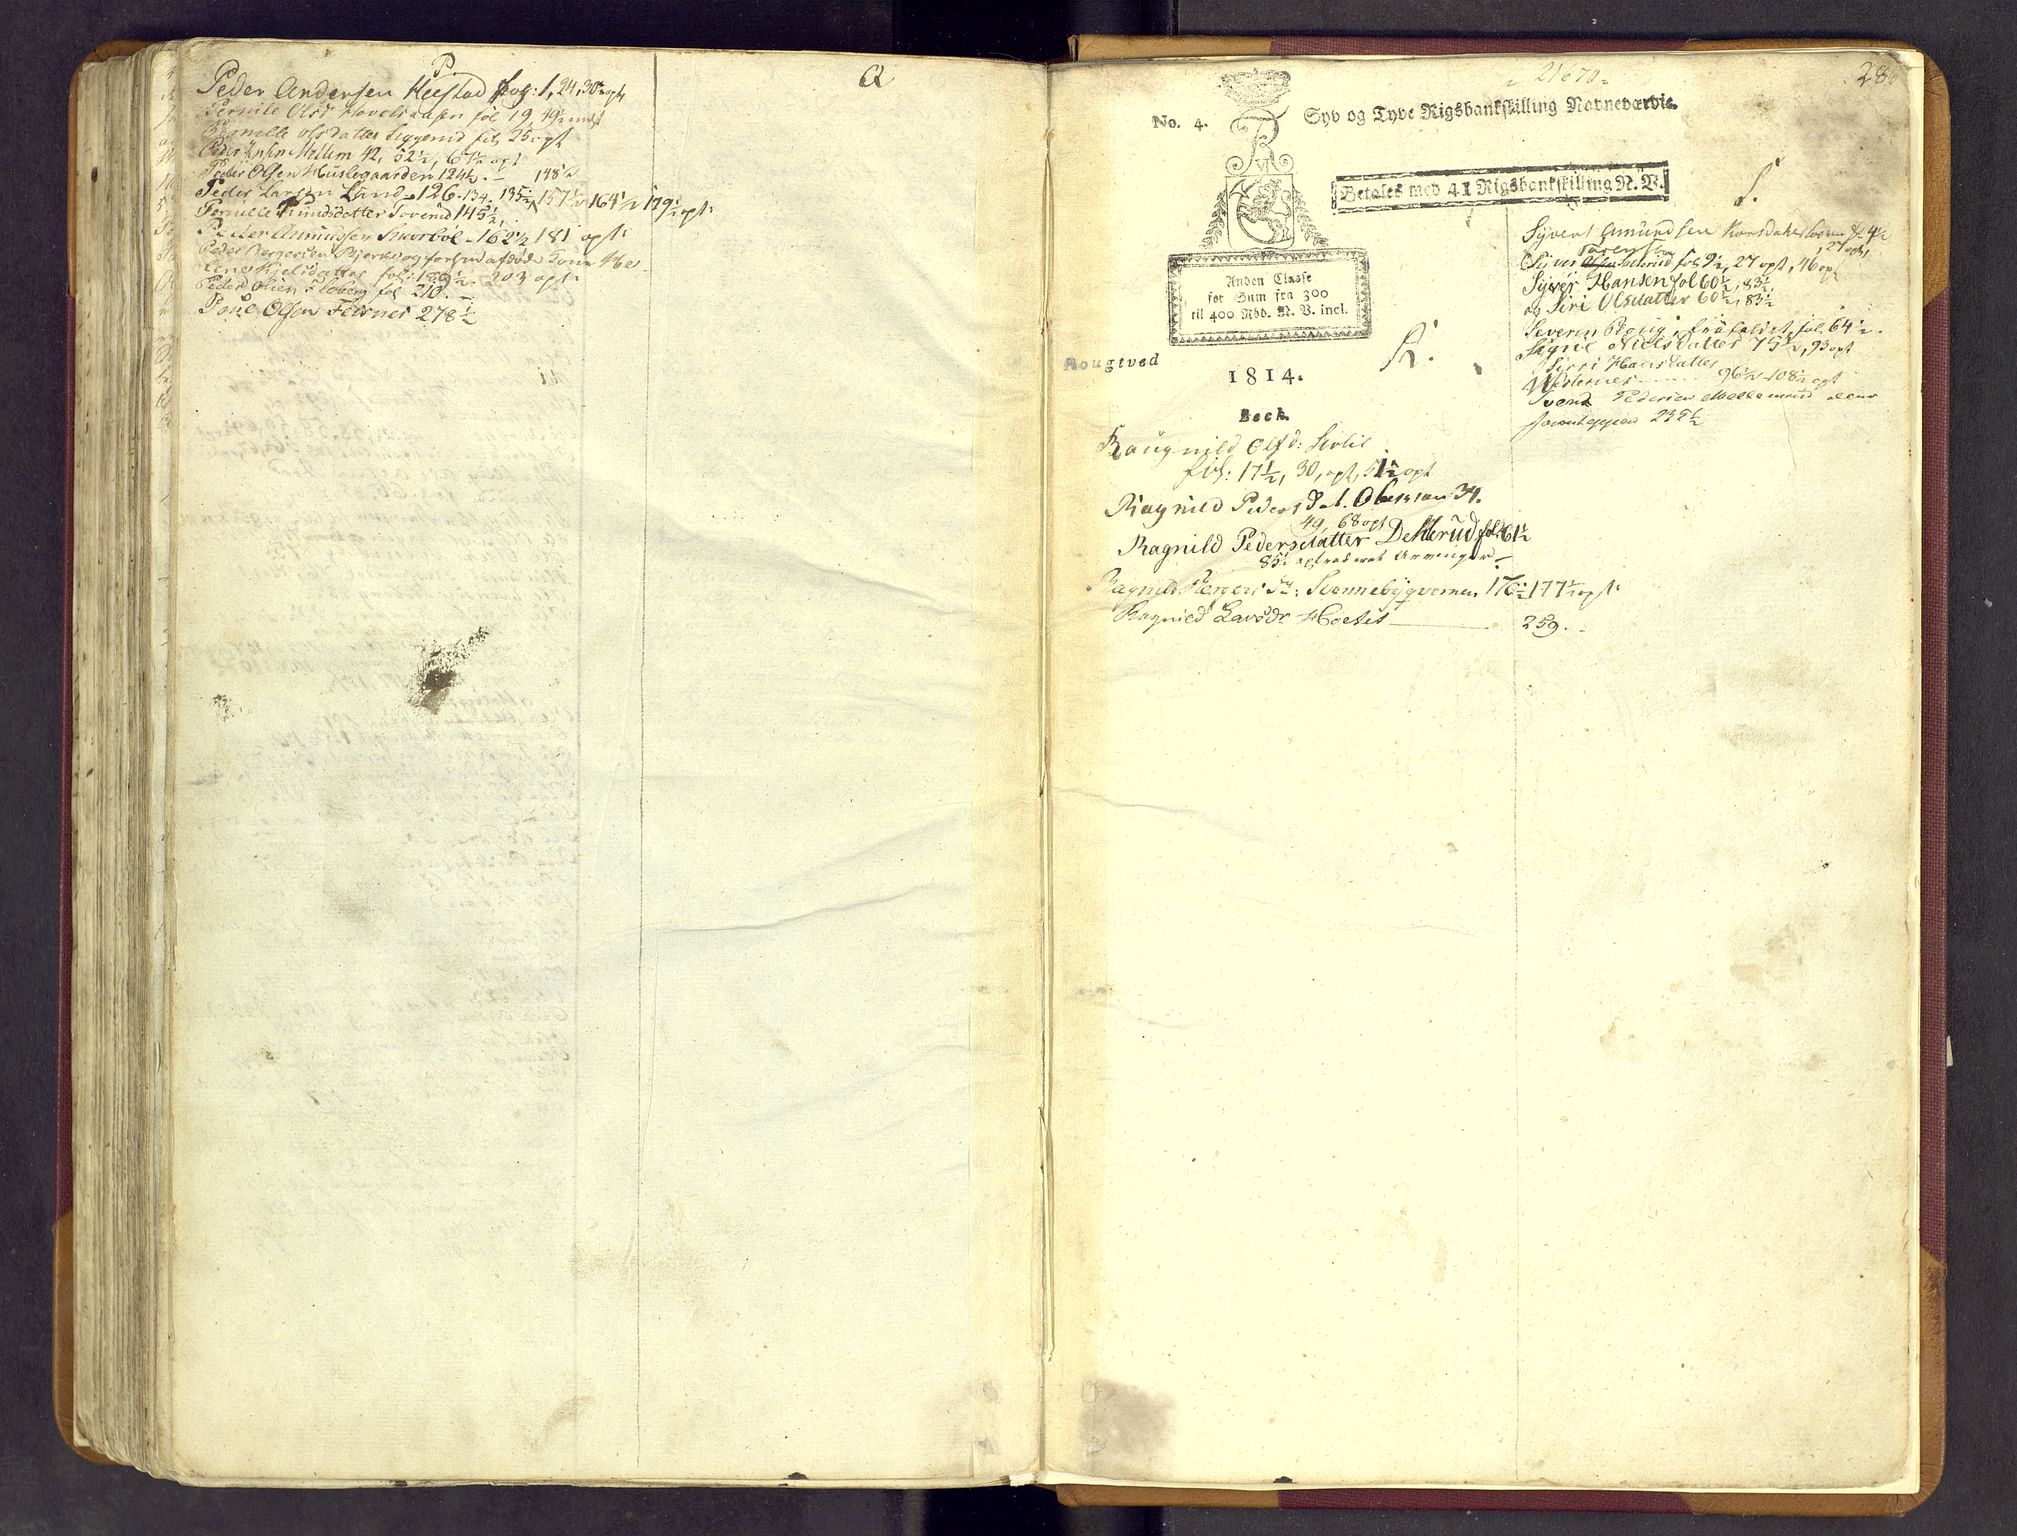 P.
Peder Andersen Heestad fol: 1, 24, 30½ opt
Pernile Olsd fol 19, 49½
Pernille Olsdatter Siggerud fol 25 opt
Peder Jensen Mellem 42, 52½, 61½ opt
Peder Olsen Huslegaarden 124½ 148½
Peder Larsen Lund 126. 134 135½ 157½ 164½ 179½ opt:
Pernille Knudsdatter Toverud 145½
Peder Amundsen Skorböl 162½ 181 opt:
Peder Børgersen Bjerke og forhen afdøde Kone He
lene Kjelsdatter fol: 189½ 203 opt:
Peder Olsen Floberg fol 210.
Poul Olsen Fetsnes 278½
Q
21670
286
No. 4. Syv og Tyve Rigsbankskilling Navneværdie.
Betales med 41 Rigsbankskilling N. V.
Anden Classe
for Sum fra 300
til 400 Rbd. N. V. incl.
Rougtved
1814.
Beck.
R.
Raugnild Olsd: Holie
fol: 17½, 30, opt, 51½ opt
Ragnild Peders Dat. 34.
49, 68 opt
Ragnild Pedersdatter Dehlerud fol 61½
85½
Ragnild 176½ 177½ opt:
Ragnild Larsdr Hoelet 259.
S.
Syvert Amundsen fol 4½
27 opt,
Sörensen
Syver fol 9½, 27 opt, 46 opt
Syver Hansen fol 60½, 83½,
og Siri Olsdatter 60½, 83½
Severin Roug, fol 64½.
Signe Nielsdatter 75½, 93 opt
Sirri Hansdatter
Westernes 96½ 108½ opt
Svend Pedersen
235½